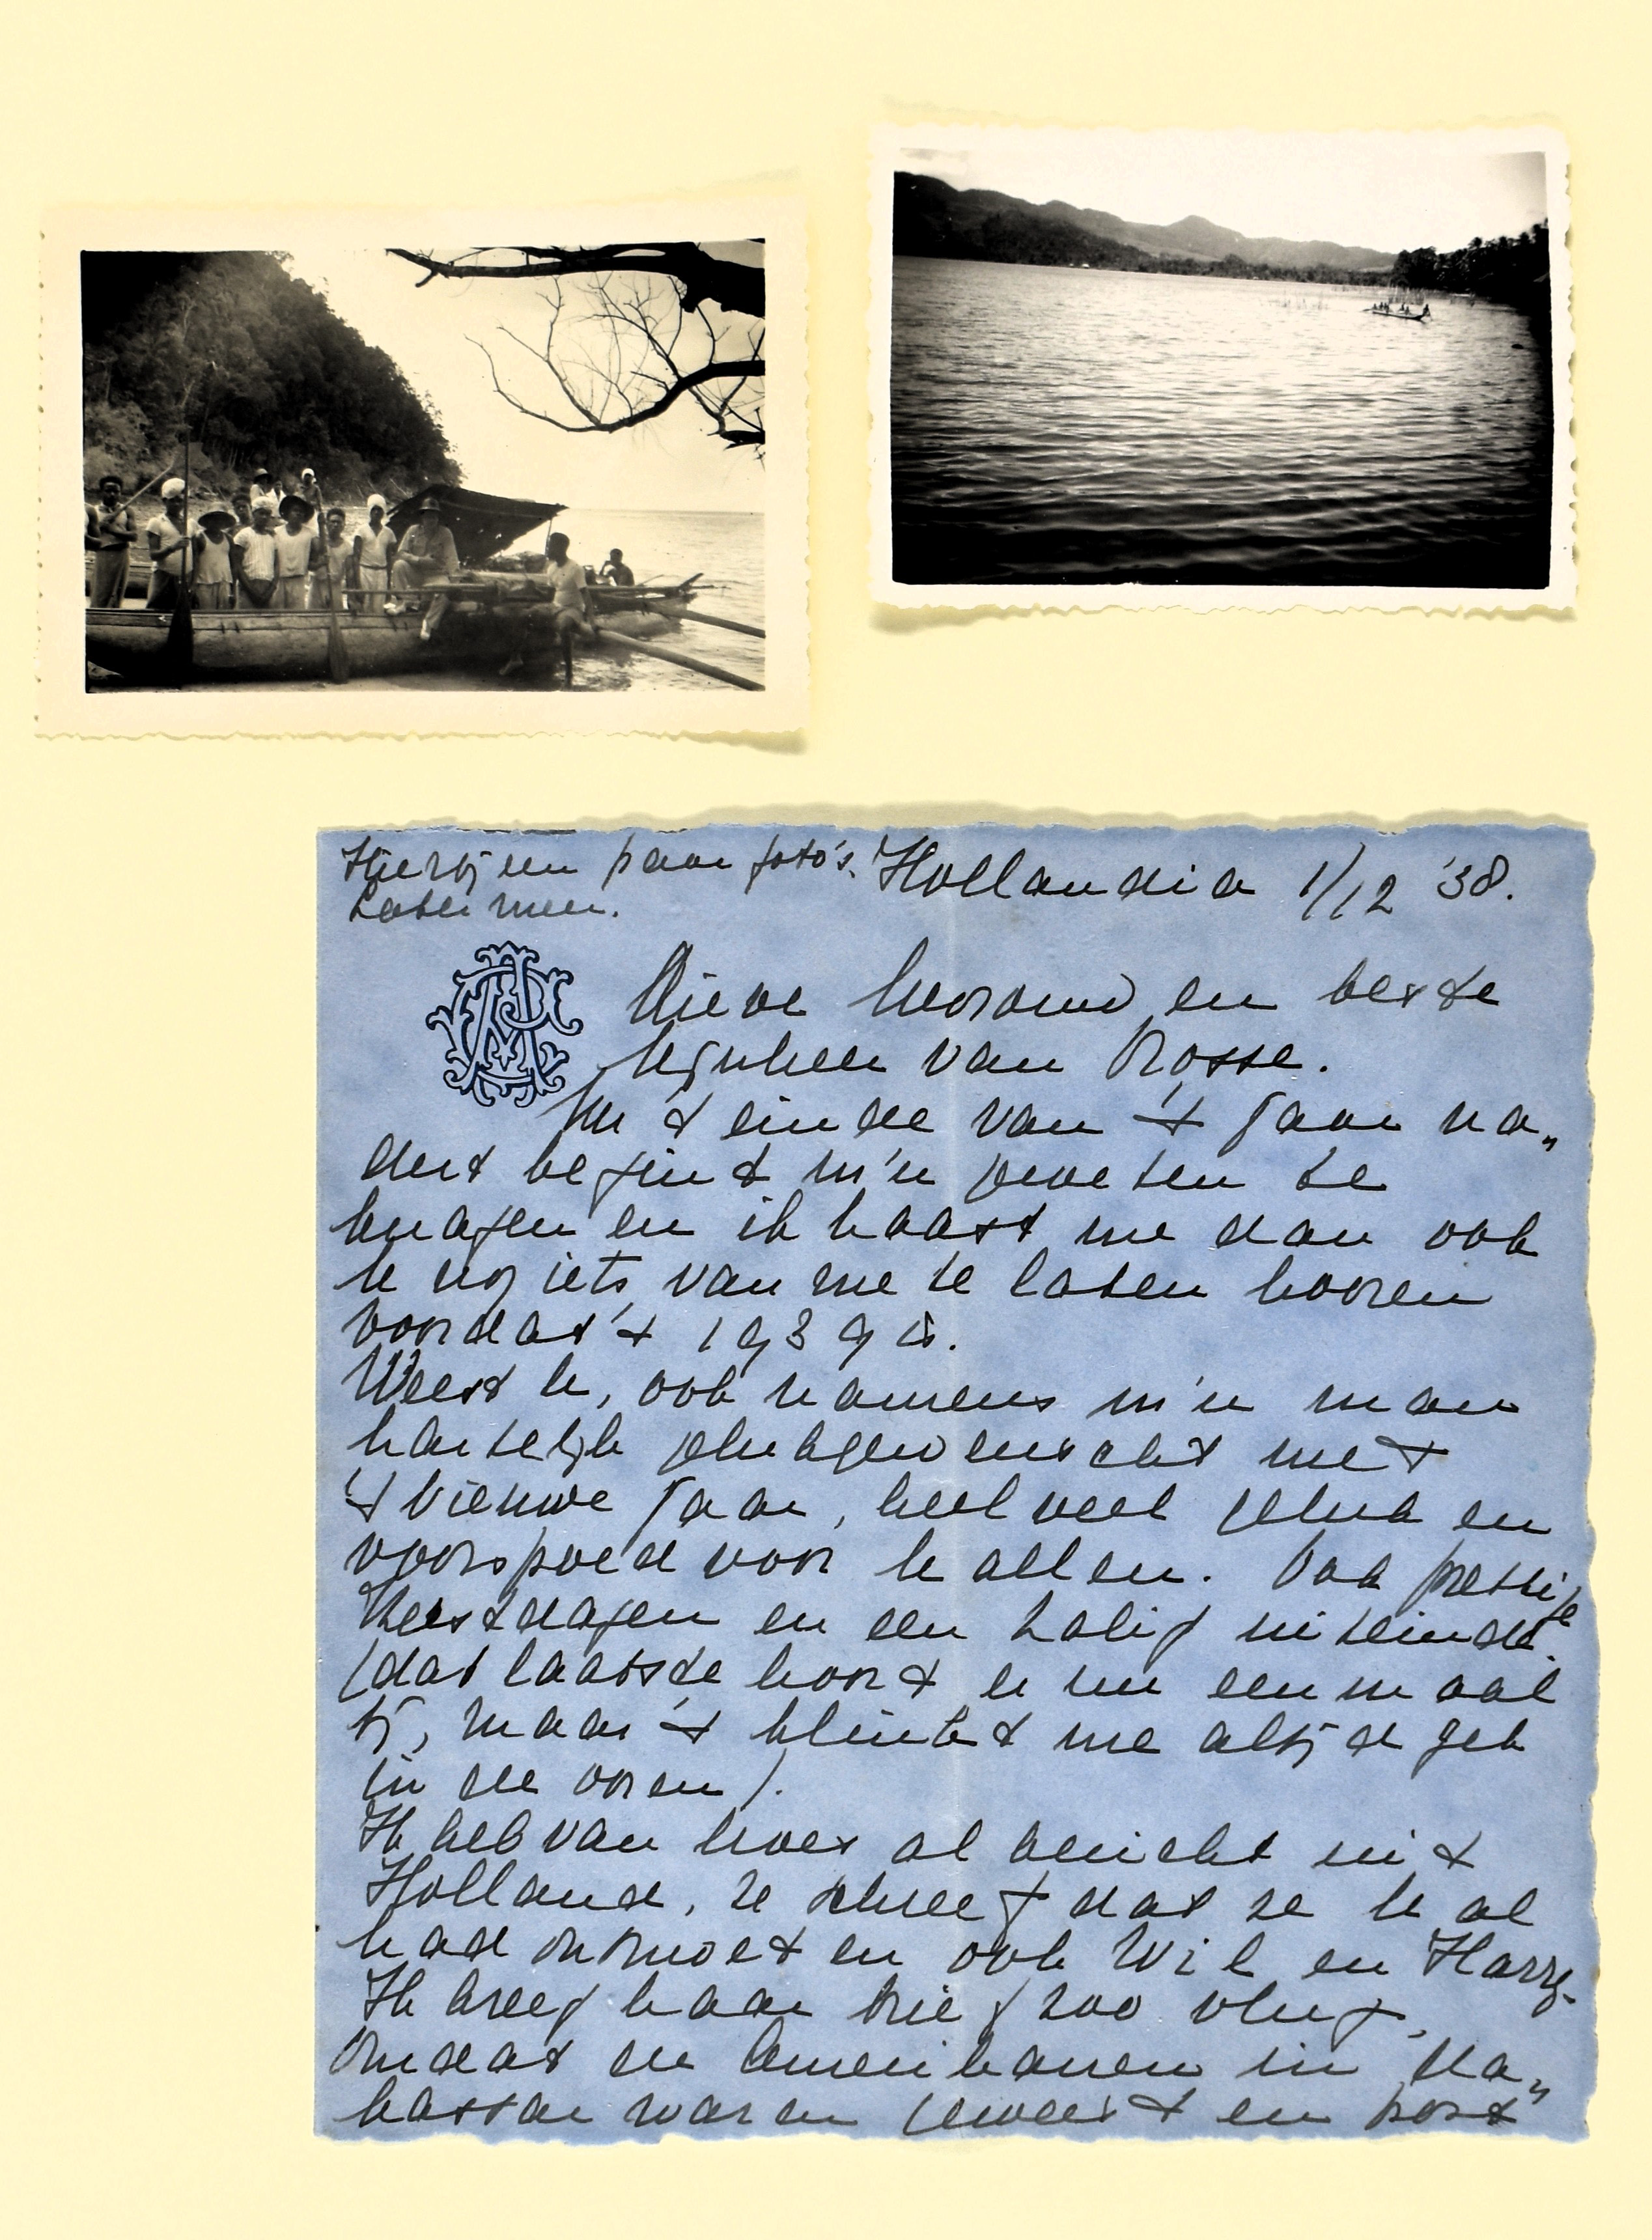 Hierbij een paar foto's.
Later meer.
Hollandia 1/12 '38.
Lieve Mevrouw en beste
Mijnheer van Rosse.
Nu 't einde van 't jaar na„
dert begint m'n geweten te
knagen en ik haast me dan ook
U nog iets van me te laten hooren
voordat 't 1939 is.
Weest U, ook namens m'n man
hartelijk gelukgewenscht met
't Nieuwe Jaar, heel veel geluk en
voorspoed voor U allen. Ook prettige
Kerstdagen en een zalig uiteinde.
(dat laatste hoort er nu eenmaal
bij, maar 't klinkt me altijd gek
in de ooren).
Ik heb van Moes al bericht uit
Holland, ze schreef dat ze U al
had ontmoet en ook Wil en Harry.
Ik kreeg haar brief zoo vlug,
omdat de Amerikanen in Ma„
kassar waren geweest en post